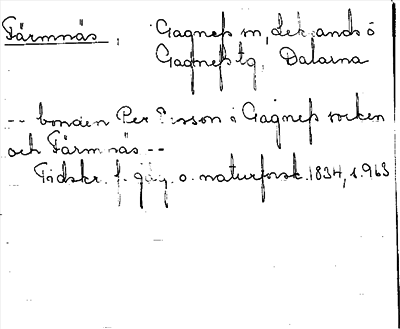 Färmnäs, Gagnefs sn, Leksands ö
Gagnefs tg, Dalarna
-- bonden Per Ersson i Gagnefs socken
och Färmnäs --
Tidskr. f. jäg. o. naturforsk. 1834, s. 963